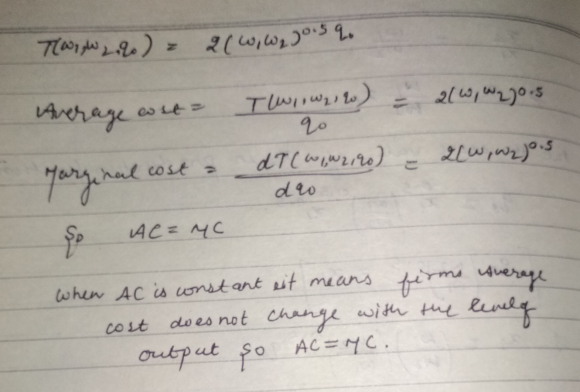 T(w₁,w₂,q₀) = 2(w₁w₂)^0.5 q₀
Average cost = T(w₁,w₂,q₀) / q₀ = 2(w₁w₂)^0.5
Marginal cost = dT(w₁,w₂,q₀) / dq₀ = 2(w₁w₂)^0.5
So AC = MC
when AC is constant it means firms average
cost does not change with the level of
output so AC = MC.